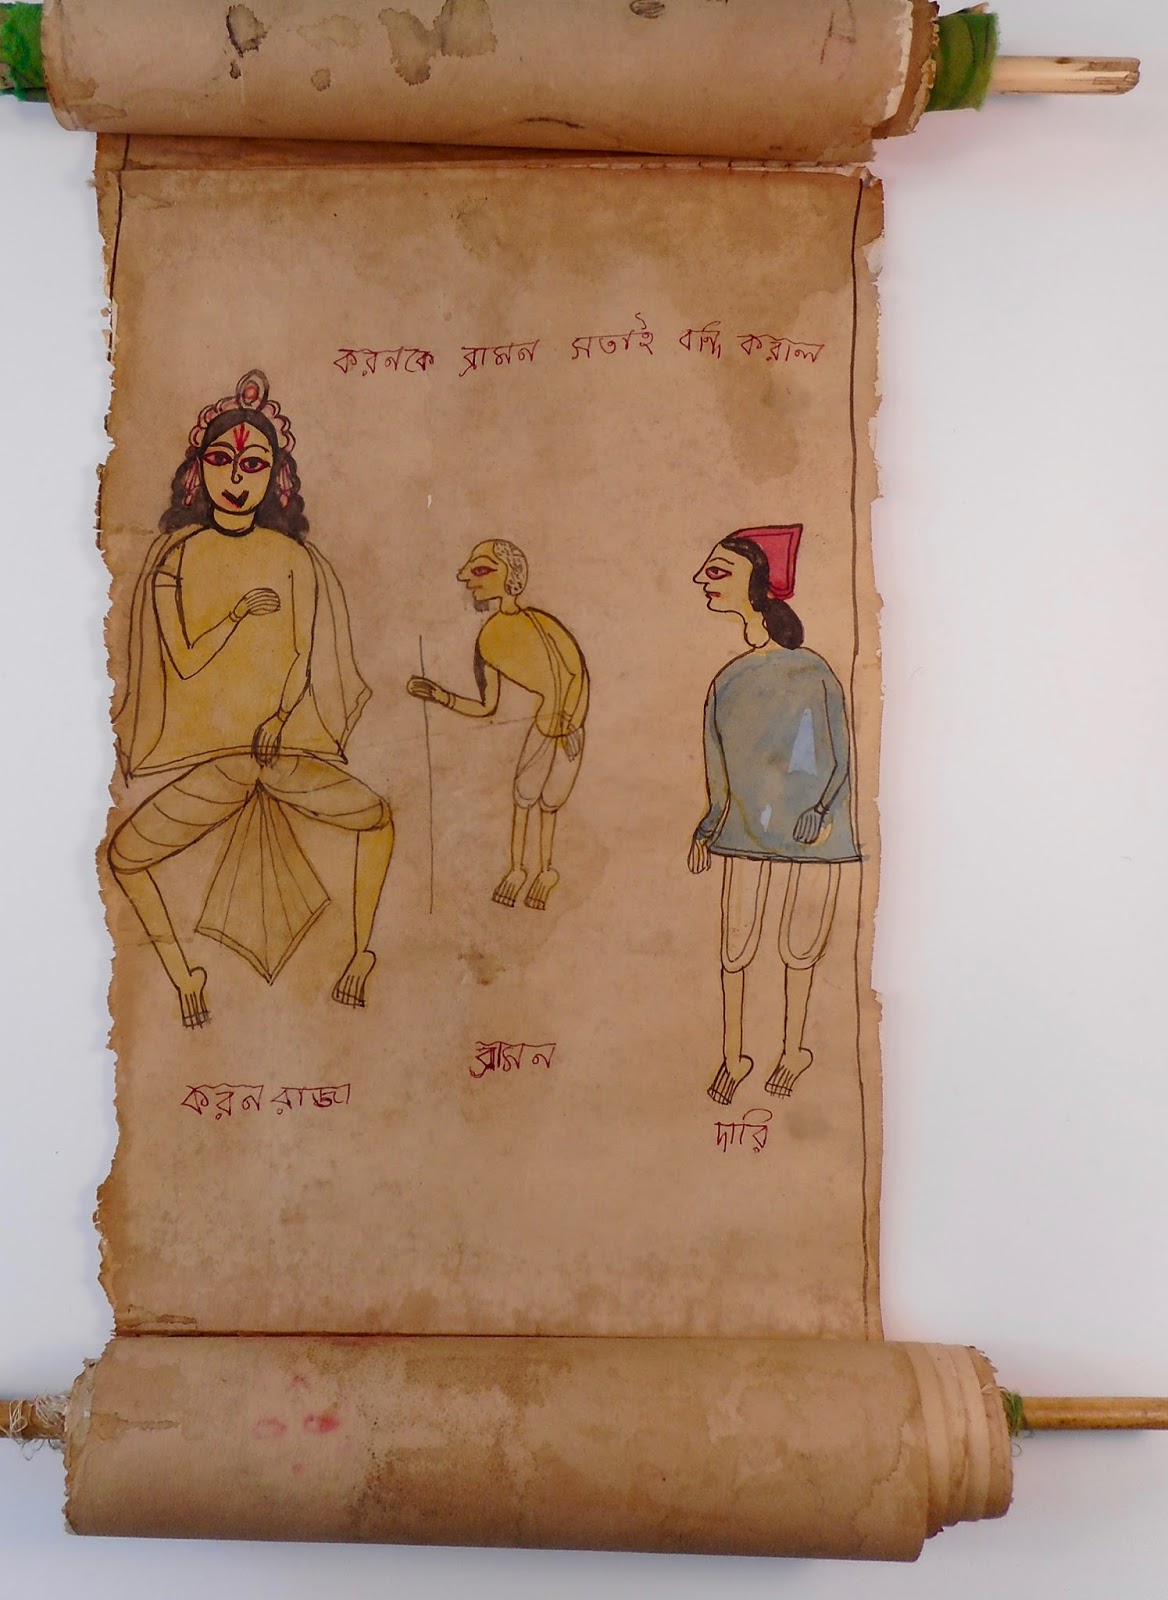 করনকে ব্রামন সতাই বন্দি করাল
ব্রামন
করন রাজা
দারি